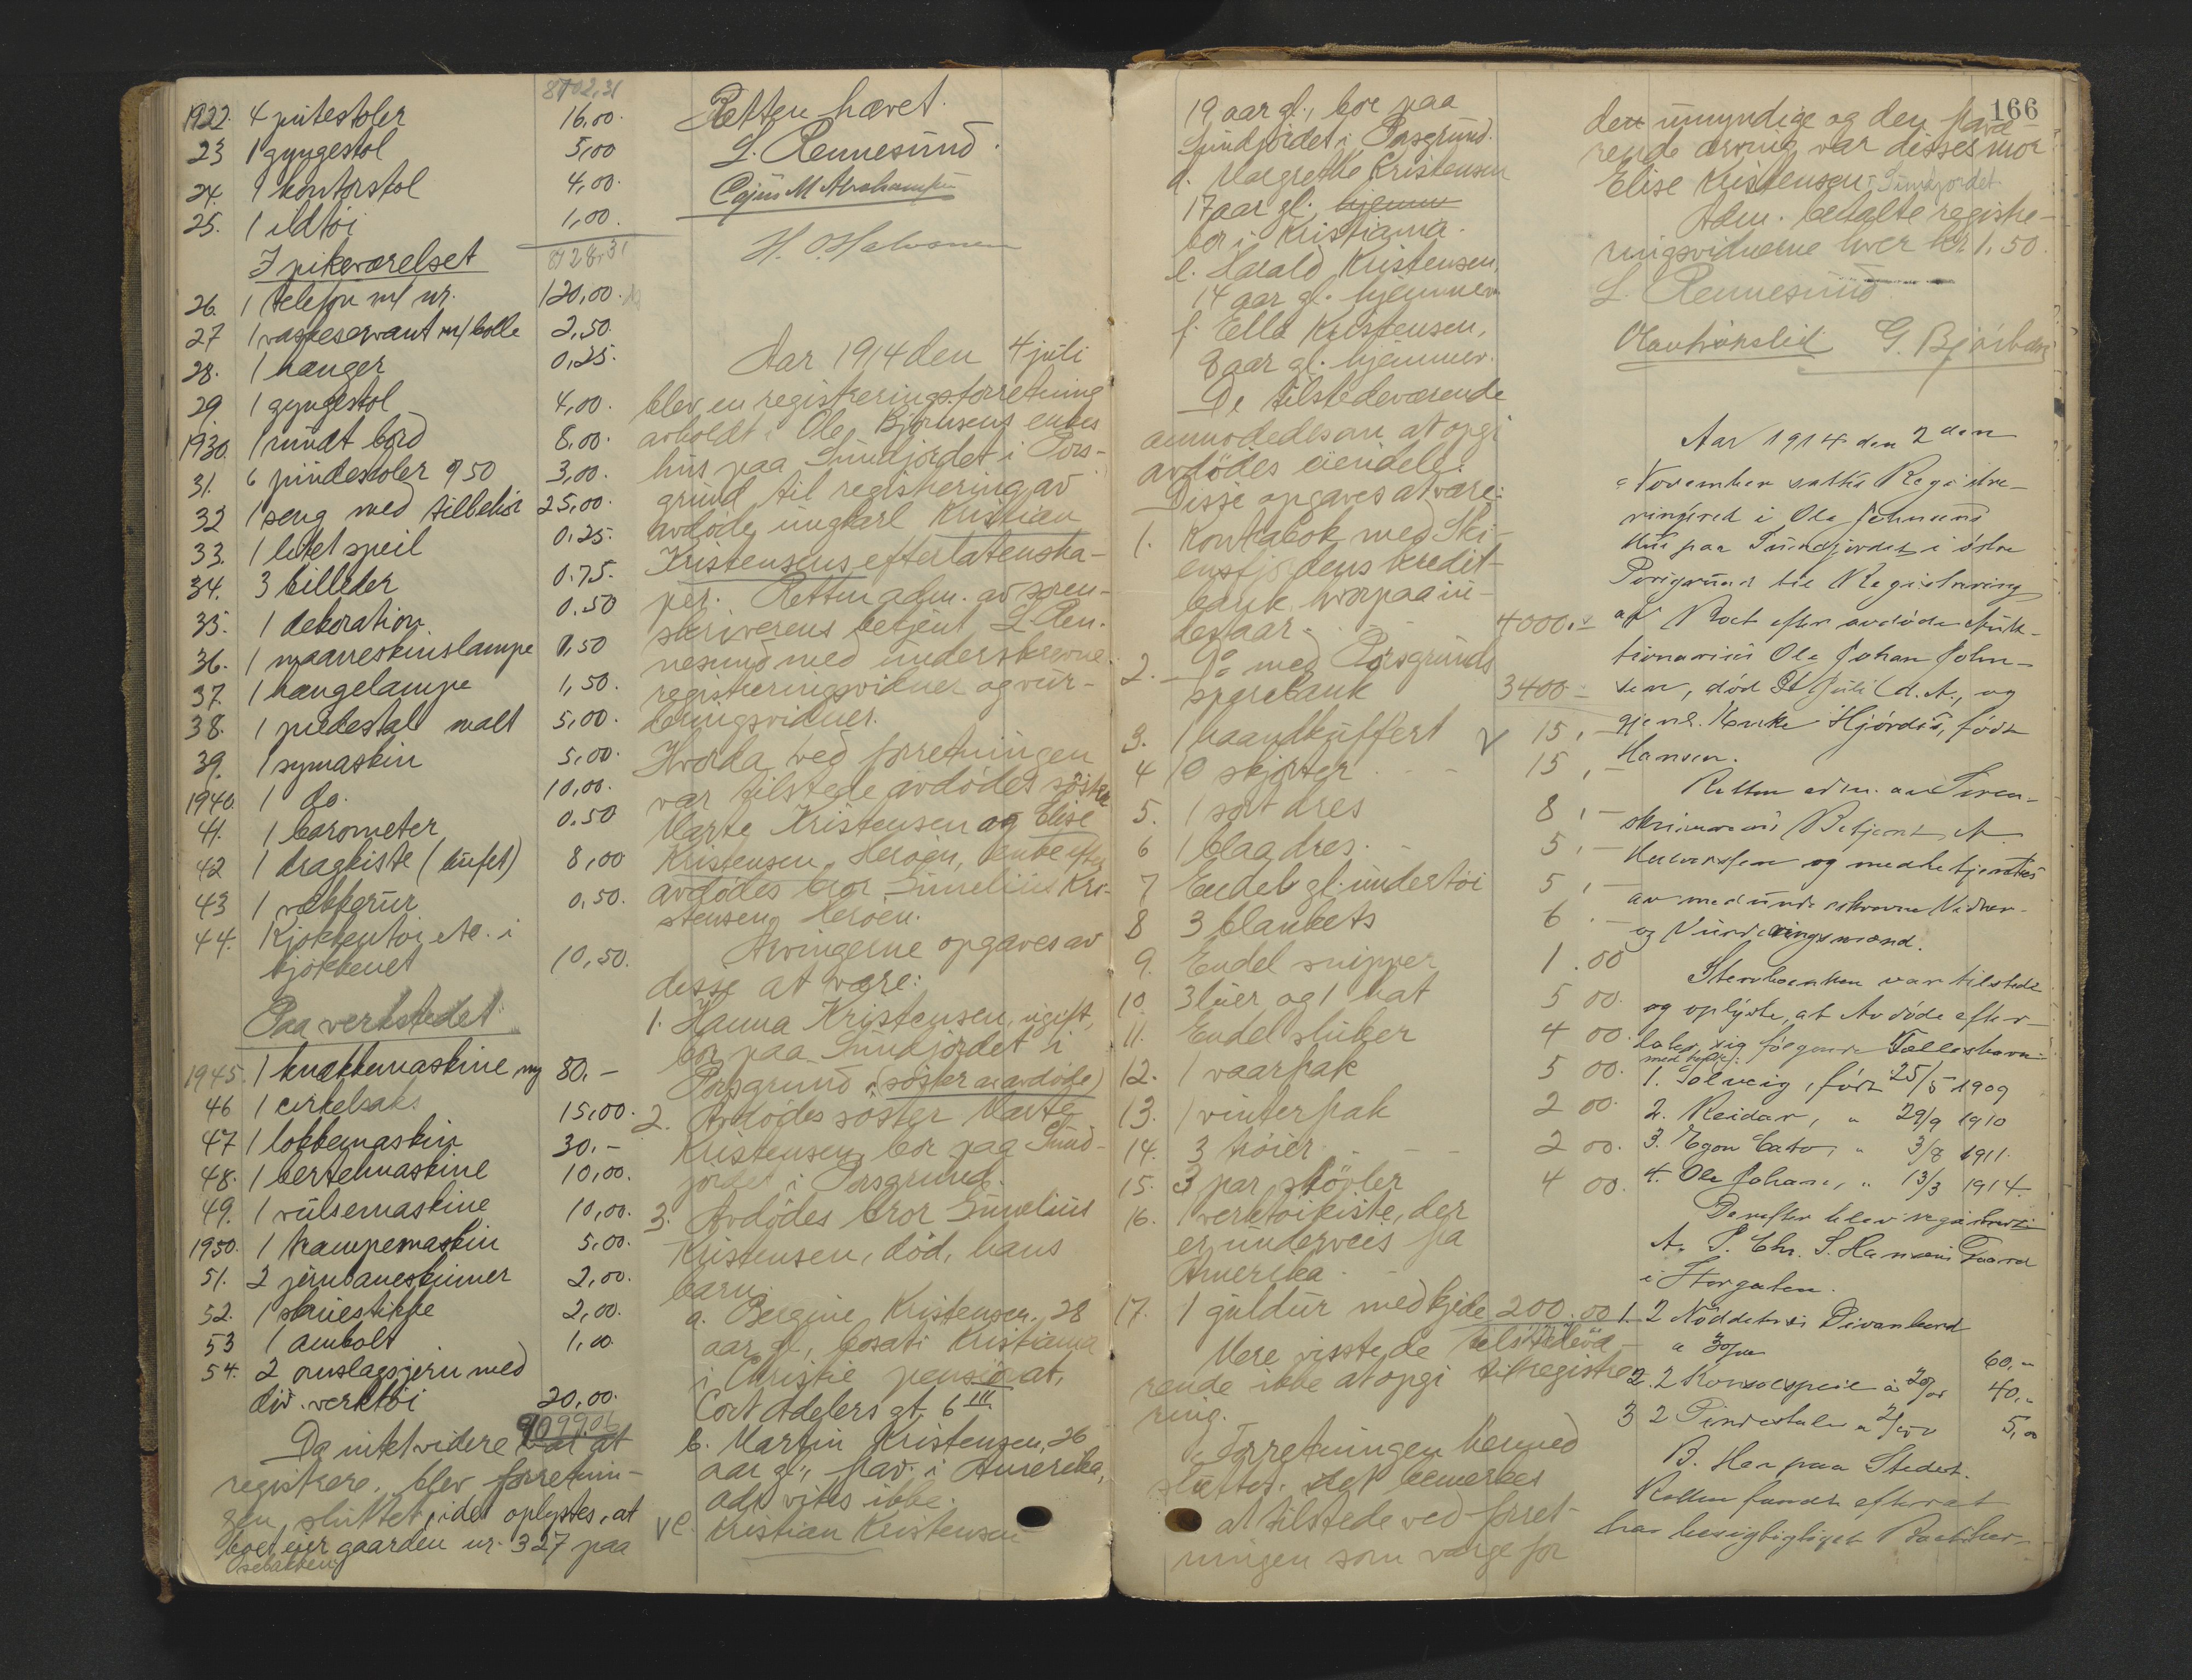 8702,31
1922. 4 pütestoler 16,00.
23 1 gyngestol 5,00
24. 1 kontorstol 4,00.
25. 1 ildtöi 1,00.
I pikeværelset 8728,31
26. 1 telefon m/ nr. 120,00.
27 1 vaskeservant m/ bolle 2,50.
28. 1 hænger 0,25.
29. 1 gyngestol 4,00.
1930. 1 rundt bord 8,00.
31. 6 pindestoler 950 3,00.
32 1 seng med tilbehör 25,00.
33. 1 litet speil 0,25.
34. 3 billeder 0.75.
35. 1 dekoration 0.50
36. 1 maaneskinslampe 1,50
37. 1 hængelampe 1,50.
38. 1 piedestal malt 5,00.
39. 1 symaskin 5,00.
1940. 1 do. 10,00.
41. 1 barometer 0.50
42 1 dragkiste (büfet) 8,00
43 1 vækkerur 0,50.
44. Kjökkentöi etc. i
kjökkenet 10,50.
Paa verkstedet
1945. 1 knækkemaskine ny 80.-
46 1 cirkelsaks 15,00.
47 1 lokkemaskin 30.-
48. 1 bertelmaskine 10,00.
49. 1 vulsemaskine 10,00.
1950. 1 krampemaskin 5,00.
51. 2 jernbaneskinner 2,00.
52. 1 skruestikke 2,00.
53 1 ambolt 1,00
54. 2 omslagsjern med
div. verktöi 20,00.
9099.06
Da intet videre var at
registrere, blev forretnin-
gen sluttet, idet oplystes, at
boet eier gaarden nr. 327 paa
Osebakken
Retten hævet.
L. Rennesund.
Cajus M Abrahamsen
H. O. Halvorsen
Aar 1914 den 4 juli
blev en registreringsforretning
avholdt i Ole Björnsens enkes
hus paa Sundjordet i Pors-
grund til registrering av
avdöde ungkarl Kristian
Kristensens efterlatenska-
per. Retten adm. av soren-
skriverens betjent L Ren-
nesund med underskrevne
registreringsvidner og vur-
deringsvidner.
Hvorda ved forretningen
var tilstede avdödes söster
Marte Kristensen og Elise
Kristensen, Heröen, enke efter
avdödes bror Sunelius Kri-
stensen Heröen.
Arvingerne opgaves av
disse at være:
1. Hanna Kristensen, ugift,
bor paa Sundjordet i
Porsgrund (söster av avdöde)
2. Avdödes söster Marte
Kristensen bor paa Sund-
jordet i Porsgrund.
3. Avdödes bror Sunelius
Kristensen, död, hans
barn:
a. Bergine Kristensen, 28
aar gl., bosat i Kristiania
i Christie pensionat,
Cort Adelers gt 6 III
b. Martin Kristensen, 26
aar gl., frav. i Amerika,
adr. vites ikke.
v c. Kristian Kristensen
19 aar gl., bor paa
Sundjordet i Porsgrund.
d. Margrethe Kristensen
17 aar gl. hjemme
bor i Kristiania.
e. Harald Kristensen,
14 aar gl. hjemmev.
f. Ella Kristensen,
8 aar gl. hjemmev.
De tilstedeværende
anmodedes om at opgi
avdödes eiendele.
Disse opgaves at være:
1. Kontrabok med Ski-
ensfjordens kredit-
bank, hvorpaa in-
destaar 4000.-
2. - Do med Porsgrunds
sparebank 3400.-
3. 1 haandkuffert v 15,-
4 10 skjorter 15,-
5. 1 sort dres 8,-
6 1 blaa dres. 5,-
7 Endel gl. undertöi 5,-
8 3 blankets 6.-
9. Endel snipper 1.00
10. 3 luer og 1 hat 5 00.
11. Endel sluker 4 00.
12. 1 vaarfrak 5 00.
13. 1 vinterfrak 2 00.
14. 3 tröier 2 00.
15. 3 par stövler 4 00.
16. 1 verktöikiste, der
er underveis fra
Amerika.
17. 1 guldur med kjede 200.00
Mere visste de tilstedevæ-
rende ikke at opgi til registre-
ring.
Forretningen hermed
sluttet. Det bemerkes
at tilstede ved forret-
ningen som værge for
166
den umyndige og den fravæ-
rende arving var disses mor
Elise Kristensen, Sundjordet
Adm. betalte registre-
ringsvidnerne hver kr. 1,50.
L. Rennesund
G. Bjørb
Aar 1914 den 2den
November sattes Registre-
ringsret i Ole Johnsens
Hus paa Sundjordet i östre
Porsgrund til Registrering
af Boet efter avdöde Funk-
tionærius Ole Johan John-
sen, död 31 Juli d. A., og
gjenl. Enke Hjördis, född
Hansen.
Retten adm. av Soren-
skriverens Betjent A.
Halvorsen og medbetjentes
av medunderskrevne Vidner
og Vurderingsmænd.
Stervboenken var tilstede
og oplyste, at Avdöde efter-
later sig fölgende Fællesbarn
med hende:
1. Solveig, född 25/5 1909
2. Reidar, " 29/9 1910
3. Egon Cato, " 3/8 1911.
4. Ole Johan, " 13/3 1914.
Derefter blev registrert:
A. I Chr. S. Hansens Gaard
i Storgaten.
1. 2 Nöddetræs Divanbord
a 30/00 60,-
2. 2 Konsolspeil a 20/00 40,-
3 2 Pindestoler a 2/50 5,00
B. Her paa Stedet.
Retten fandt efterat
ha besigtiget Boet her-